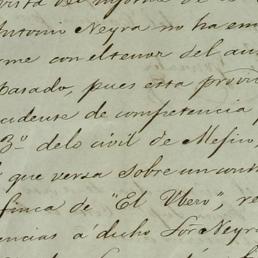 vista del informe de
Antonio Neyra no ha em
rme con el tenor del au
Pasado, pues esta provi
cidense de competencia
3º de lo civil de Mejico,
que versa sobre un cont
finca de "El Ubero", re
encias á dicho Sõr Neyra